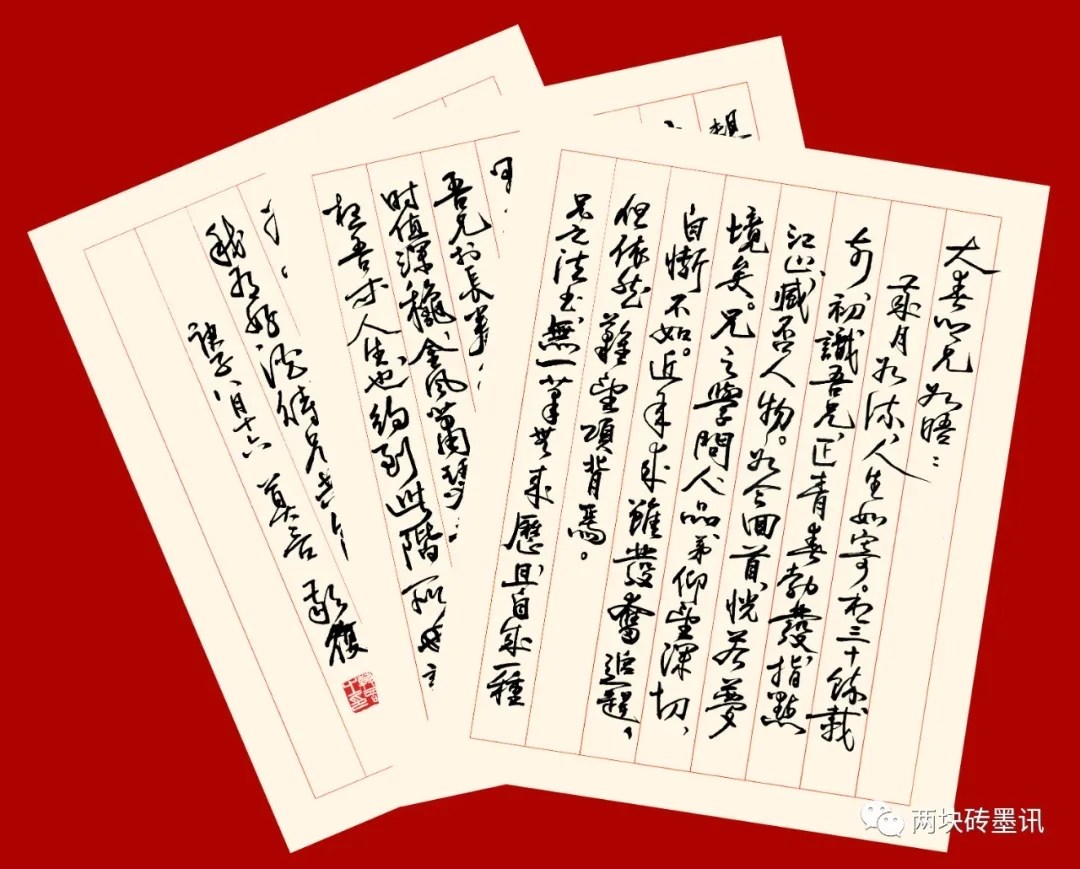 大春仁兄如晤：
歲月如流，人生如寄。三十餘載
前初識吾兄，正青春勃發，指點
江山，臧否人物。如今回首，恍若夢
境矣。兄之學問人品，弟仰望深切，
自慚不如。近年來雖發奮追趕，
但依然難望項背焉。
兄之法書，無一筆無來歷，且自成一種
想
吾兄於長
時值深龝，金風蕭瑟
想吾 人生也，約到此階
我有好酒待兄
庚子八月十六 莫言 敬復
两块砖墨讯